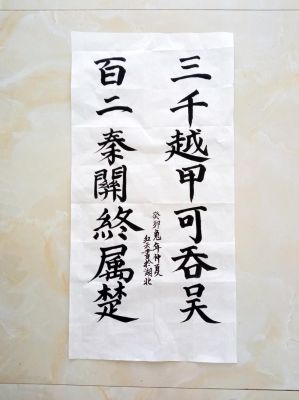 三千越甲可吞吴
百二秦關終属楚
癸卯兔年仲夏
红云書於湖北